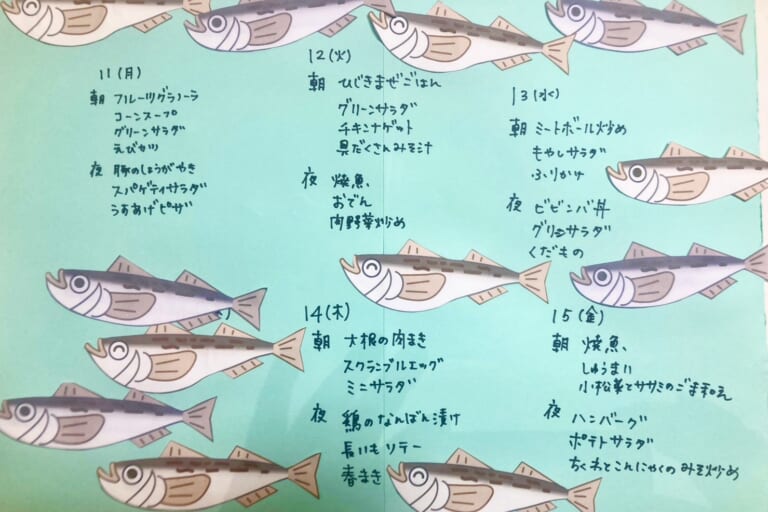 11(月)
朝 フルーツグラノーラ
コーンスープ
グリーンサラダ
えびカツ
夜 豚のしょうがやき
スパゲティサラダ
うすあげピザ
12(火)
朝 ひじきまぜごはん
グリーンサラダ
チキンナゲット
具だくさんみそ汁
夜 焼魚
おでん
肉野菜炒め
13(水)
朝 ミートボール炒め
もやしサラダ
ふりかけ
夜 ビビンバ丼
グリーンサラダ
くだもの
14(木)
朝 大根の肉まき
スクランブルエッグ
ミニサラダ
夜 鶏のなんばん漬け
長いもソテー
春まき
15(金)
朝 焼魚
しゅうまい
小松菜とササミのごま和え
夜 ハンバーグ
ポテトサラダ
ちくわとこんにゃくのみそ炒め